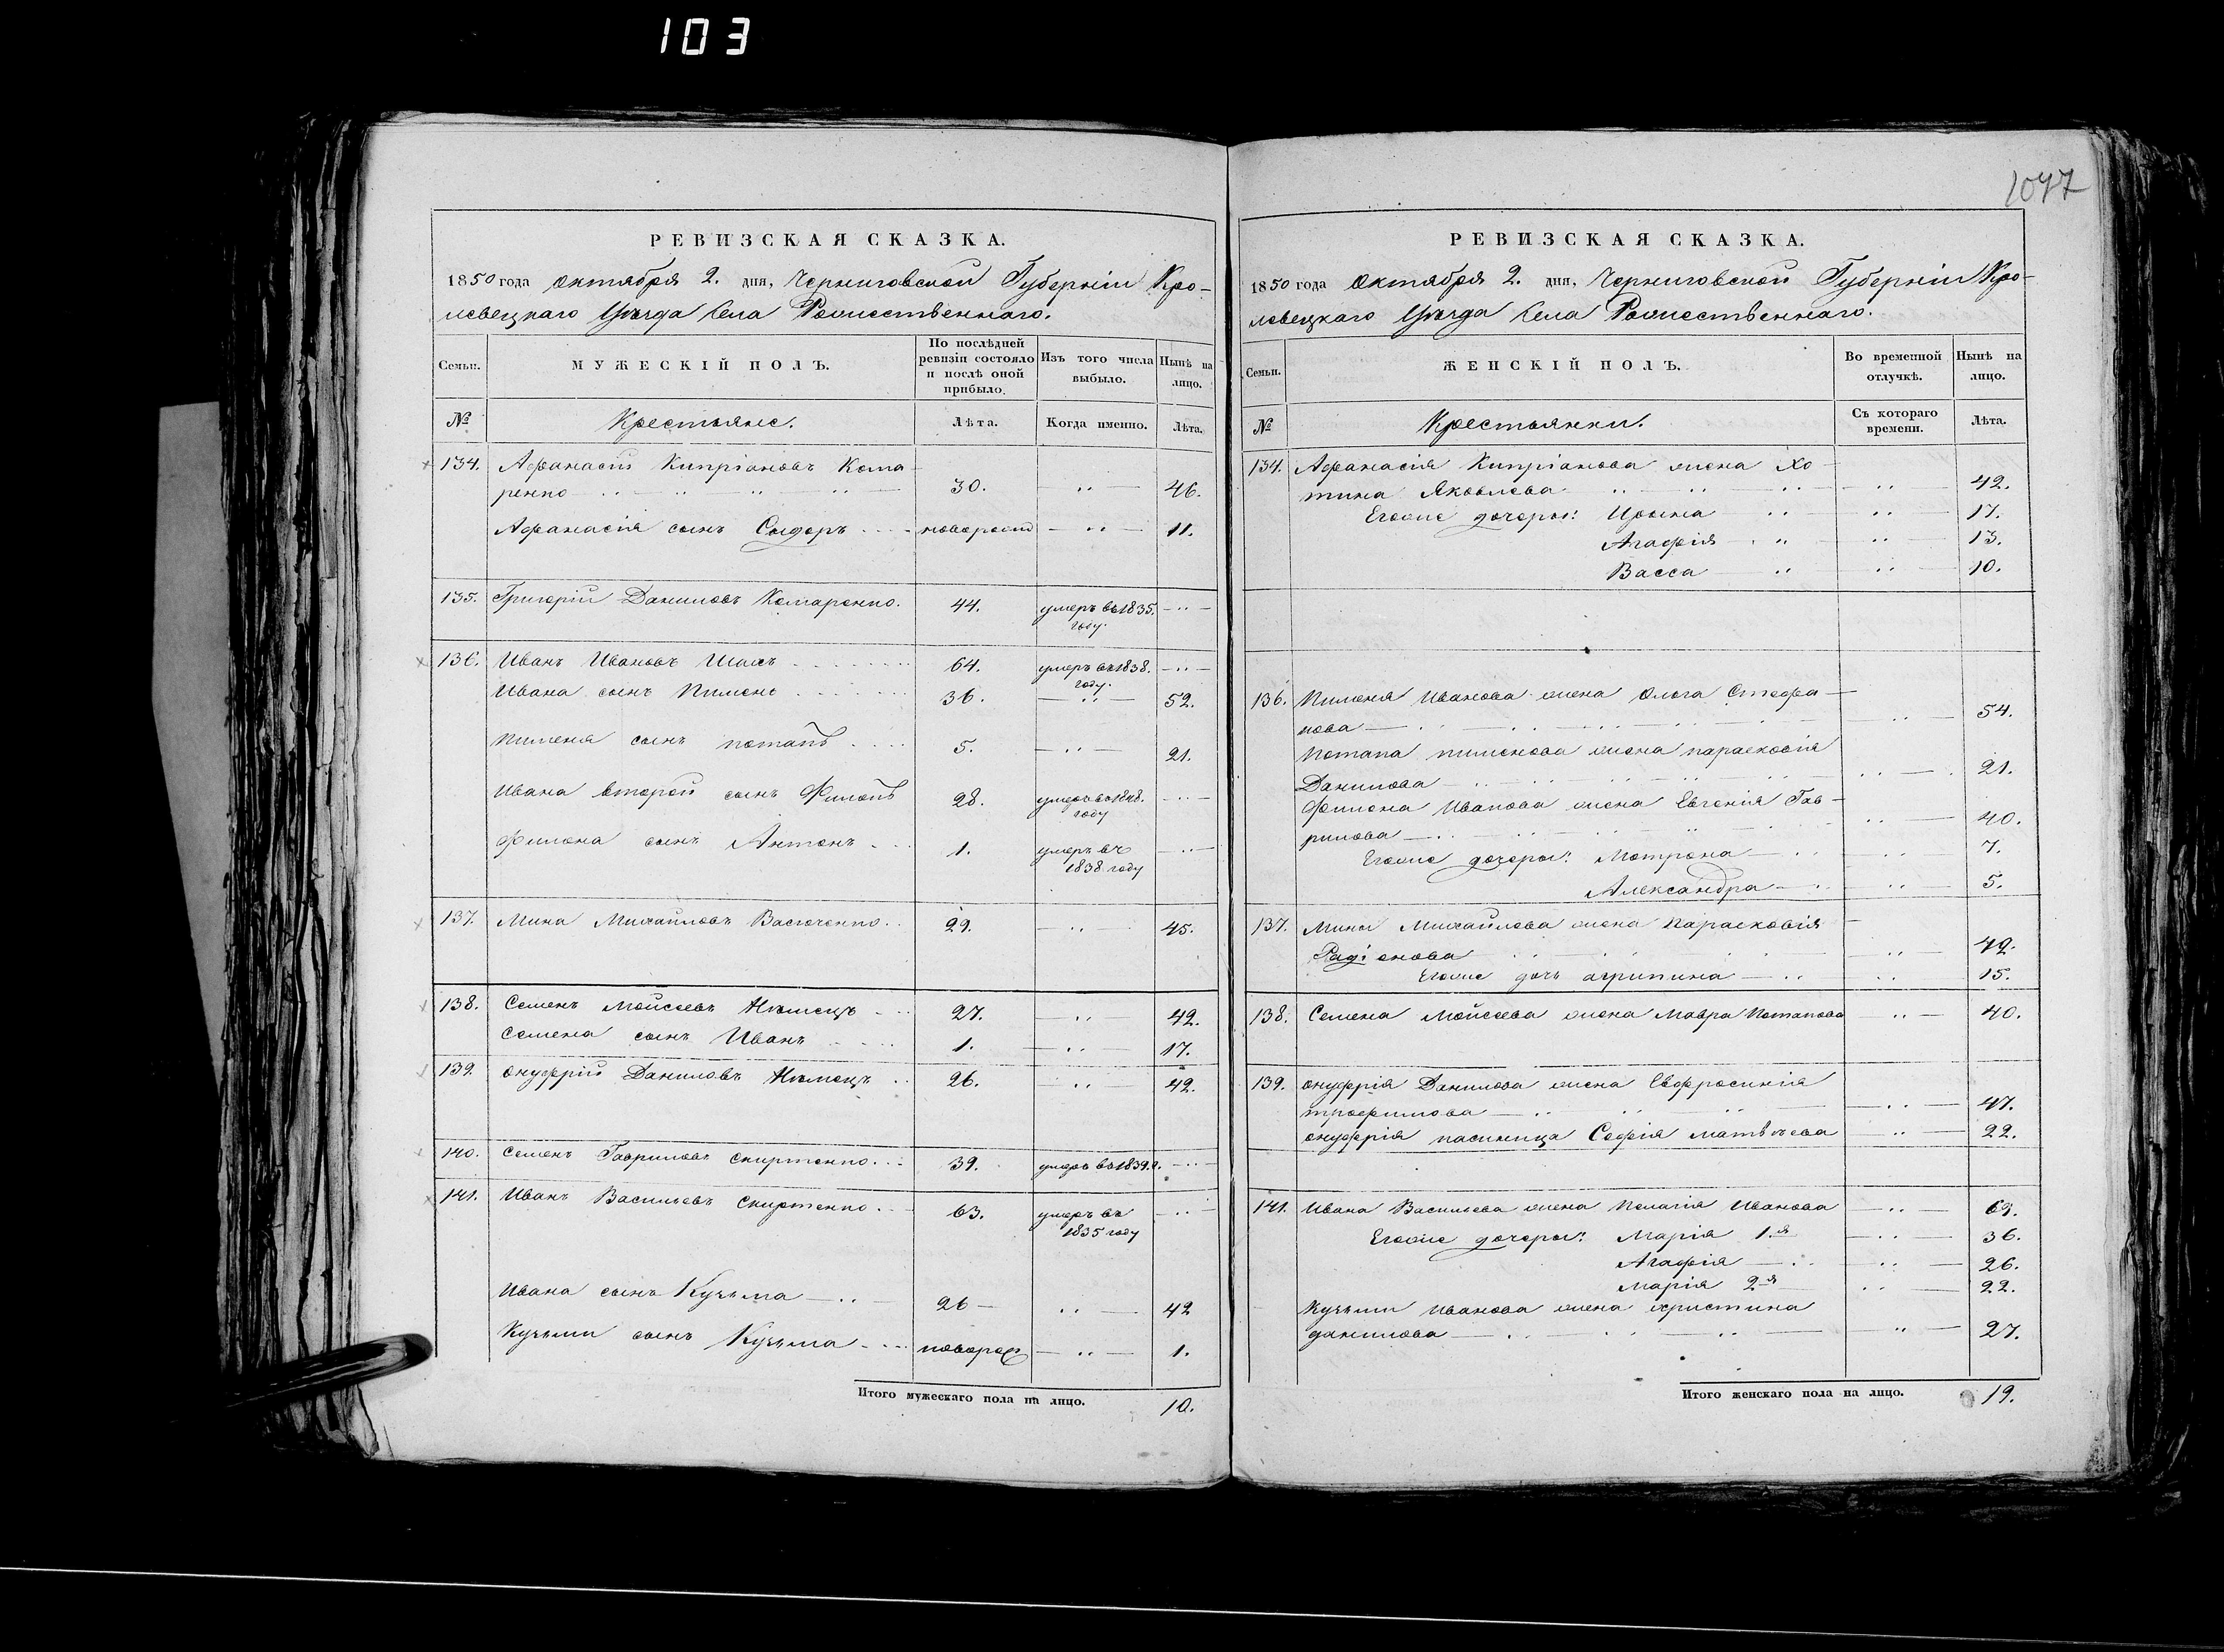 103
1077
РЕВИЗСКАЯ СКАЗКА.
1850 года октября 2. дня, Черниговской Губерніи Кро-
левецкаго Уѣзда Села Рожественнаго.
Семьи. МУЖЕСКІЙ ПОЛЪ. По послѣдней ревизіи состояло и послѣ оной прибыло. Изъ того числа выбыло. Нынѣ на лицо.
№ Крестьяне. Лѣта. Когда именно. Лѣта.
134. Афанасій Кипріановъ Кома-
ренко 30. 46.
Афанасія сынъ Сыдоръ новорожд 11.
135. Григорій Даниловъ Комаренко. 44. умеръ въ 1835.
году.
136. Иванъ Ивановъ Шахъ 64. умеръ въ 1838.
году.
Ивана сынъ Пименъ 36. 52.
Пименя сынъ потапъ 5. 21.
Ивана второй сынъ Филонъ 28. умеръ въ 1848.
году
Филона сынъ Антонъ 1. умеръ въ
1838 году
137. Мина Михайловъ Васюченко 29. 45.
138. Семенъ Мойсеевъ Нѣмецъ 27. 42.
Семена сынъ Иванъ 1. 17.
139. Онуфрій Даниловъ Нѣмецъ 26. 42.
140. Семенъ Гавриловъ Скиртенко 39. умеръ въ 1839.г.
141. Иванъ Васильевъ Скиртенко 63. умеръ въ
1835 году
Ивана сынъ Кузьма 26 42
Кузьми сынъ Кузьма новорож 1.
Итого мужескаго пола на лицо. 10.
РЕВИЗСКАЯ СКАЗКА.
1850 года октября 2. дня, Черниговской Губерніи Кро-
левецкаго Уѣзда Села Рожественнаго.
Семьи. ЖЕНСКІЙ ПОЛЪ. Во временной отлучкѣ. Нынѣ на лицо.
№ Крестьянки. Съ котораго времени. Лѣта.
134. Афанасія Кипріанова жена Хо-
тина Яковлева 42.
Егоже дочеры: Ирына 17.
Агафія 13.
Васса 10.
136. Пименя Иванова жена Ольга Стефа-
нова 54.
Потапа пименова жена парасковія
Данилова 21.
Филона Иванова жена Евгенія Гав-
рилова 40.
Егоже дочеры: Мотрона 7.
Александра 5.
137. Мины Михайлова жена Парасковія
Радіонова 42.
Егоже дочь агрипина 15.
138. Семена Мойсеева жена Мавра Потапова 40.
139. Онуфрія Данилова жена Евфросинія
трофимова 47.
онуфрія пасиница Софія матвѣева 22.
141. Ивана Васильева жена Пелагія Иванова 69.
Егоже дочеры: Марія 1.я 36.
Агафія 26.
марія 2я 22.
Кузьми Иванова жена христина
данилова 27.
Итого женскаго пола на лицо. 19.